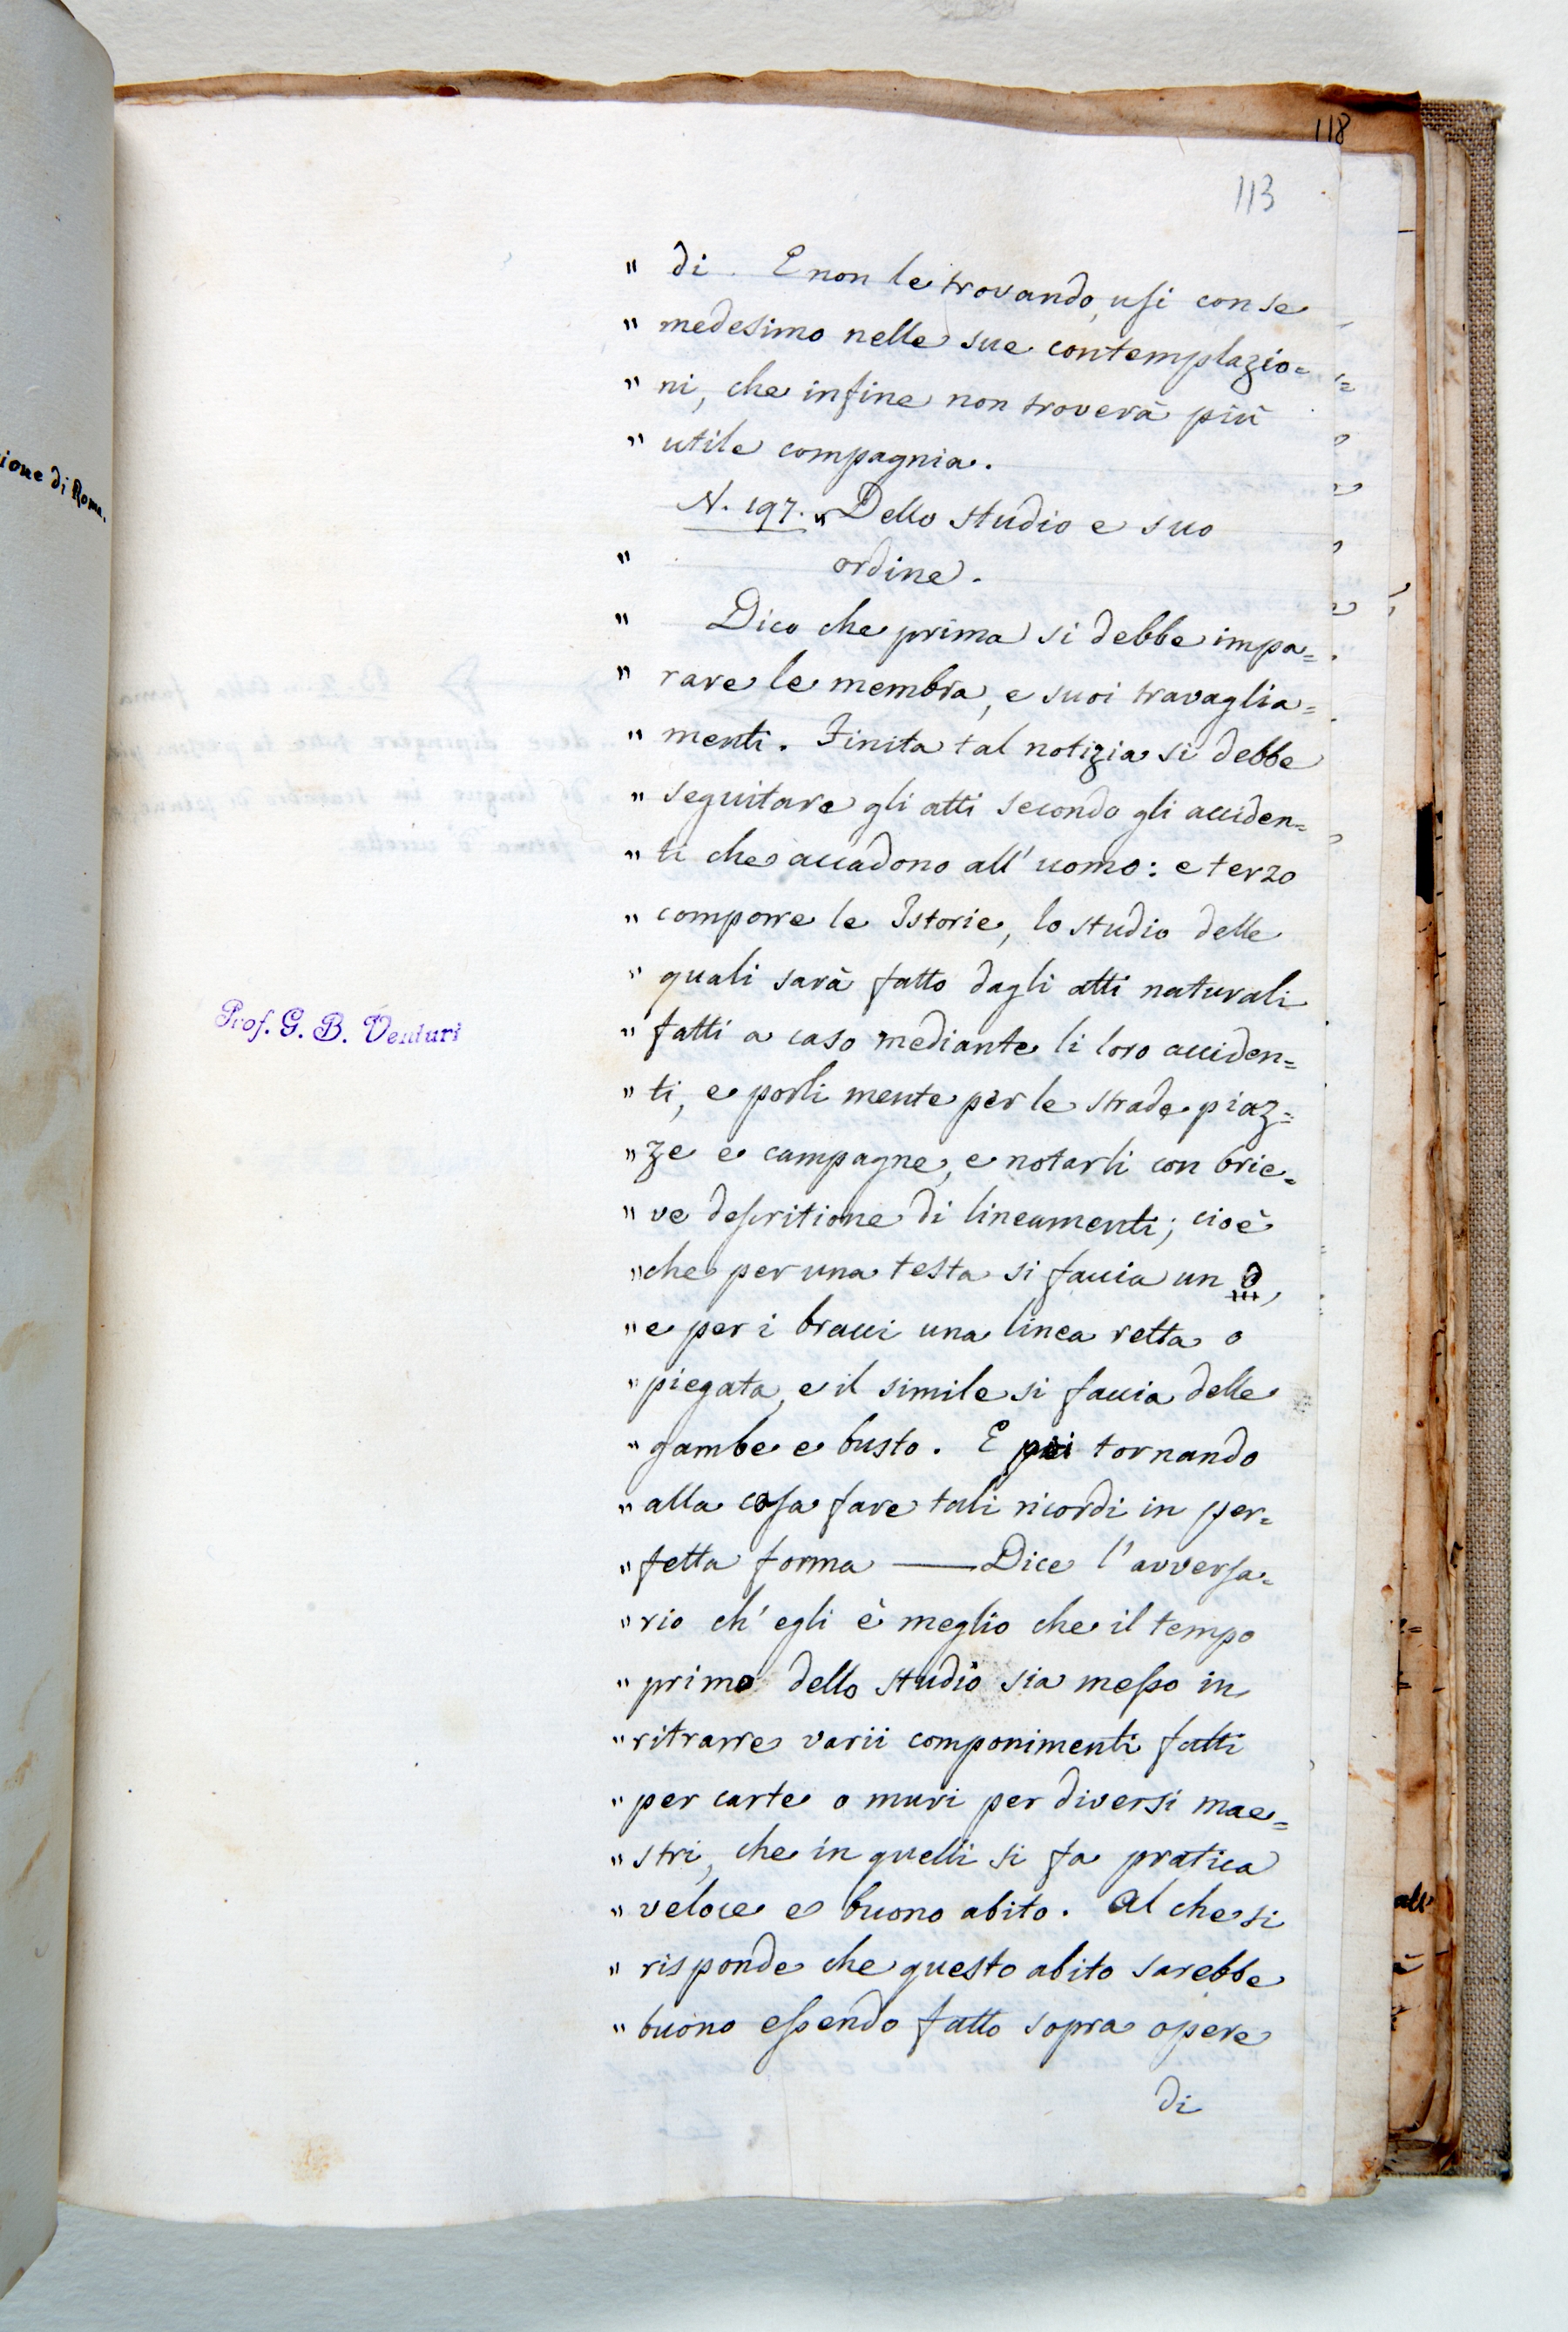 118
113
" di. E non le trovando, usi con se
" medesimo nelle sue contemplazio=
" ni, che infine non troverà più
" utile compagnia.
N. 197. " Dello studio e suo
" ordine.
" Dico che prima si debbe impa=
" rare le membra, e suoi travaglia=
" menti. Finita tal notizia si debbe
" seguitare gli atti secondo gli acciden=
" ti che accadono all'uomo: e terzo
" comporre le Istorie, lo studio delle
" quali sarà fatto dagli atti naturali
" fatti a caso mediante li loro acciden=
" ti, e porli mente per le strade piaz=
" ze e campagne, e notarli con brie=
" ve descritione di lineamenti; cioè
" che per una testa si faccia un O,
" e per i bracci una linea retta o
" piegata, e il simile si faccia delle
" gambe e busto. E poi tornando
" alla casa fare tali ricordi in per=
" fetta forma — Dice l'avversa=
" rio ch'egli è meglio che il tempo
" primo dello studio sia messo in
" ritrarre varii componimenti fatti
" per carte o muri per diversi mae=
" stri, che in quelli si fa pratica
" veloce e buono abito. Al che si
" risponde che questo abito sarebbe
" buono essendo fatto sopra opere
di
Prof. G. B. Venturi
ione di Roma.